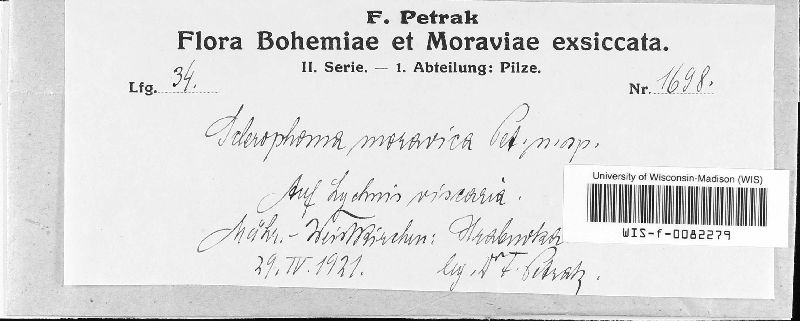 F. Petrak
Flora Bohemiae et Moraviae exsiccata.
II. Serie. — 1. Abteilung: Pilze.
Lfg. 34. Nr. 1698.
Sclerophoma moravica Pet. n. sp.
Auf Lychnis viscaria.
Mähr.-Weisskirchen: Hrabuvka
29. IV. 1921. leg. Dr F. Petrak.
University of Wisconsin-Madison (WIS)
WIS-f-0082279